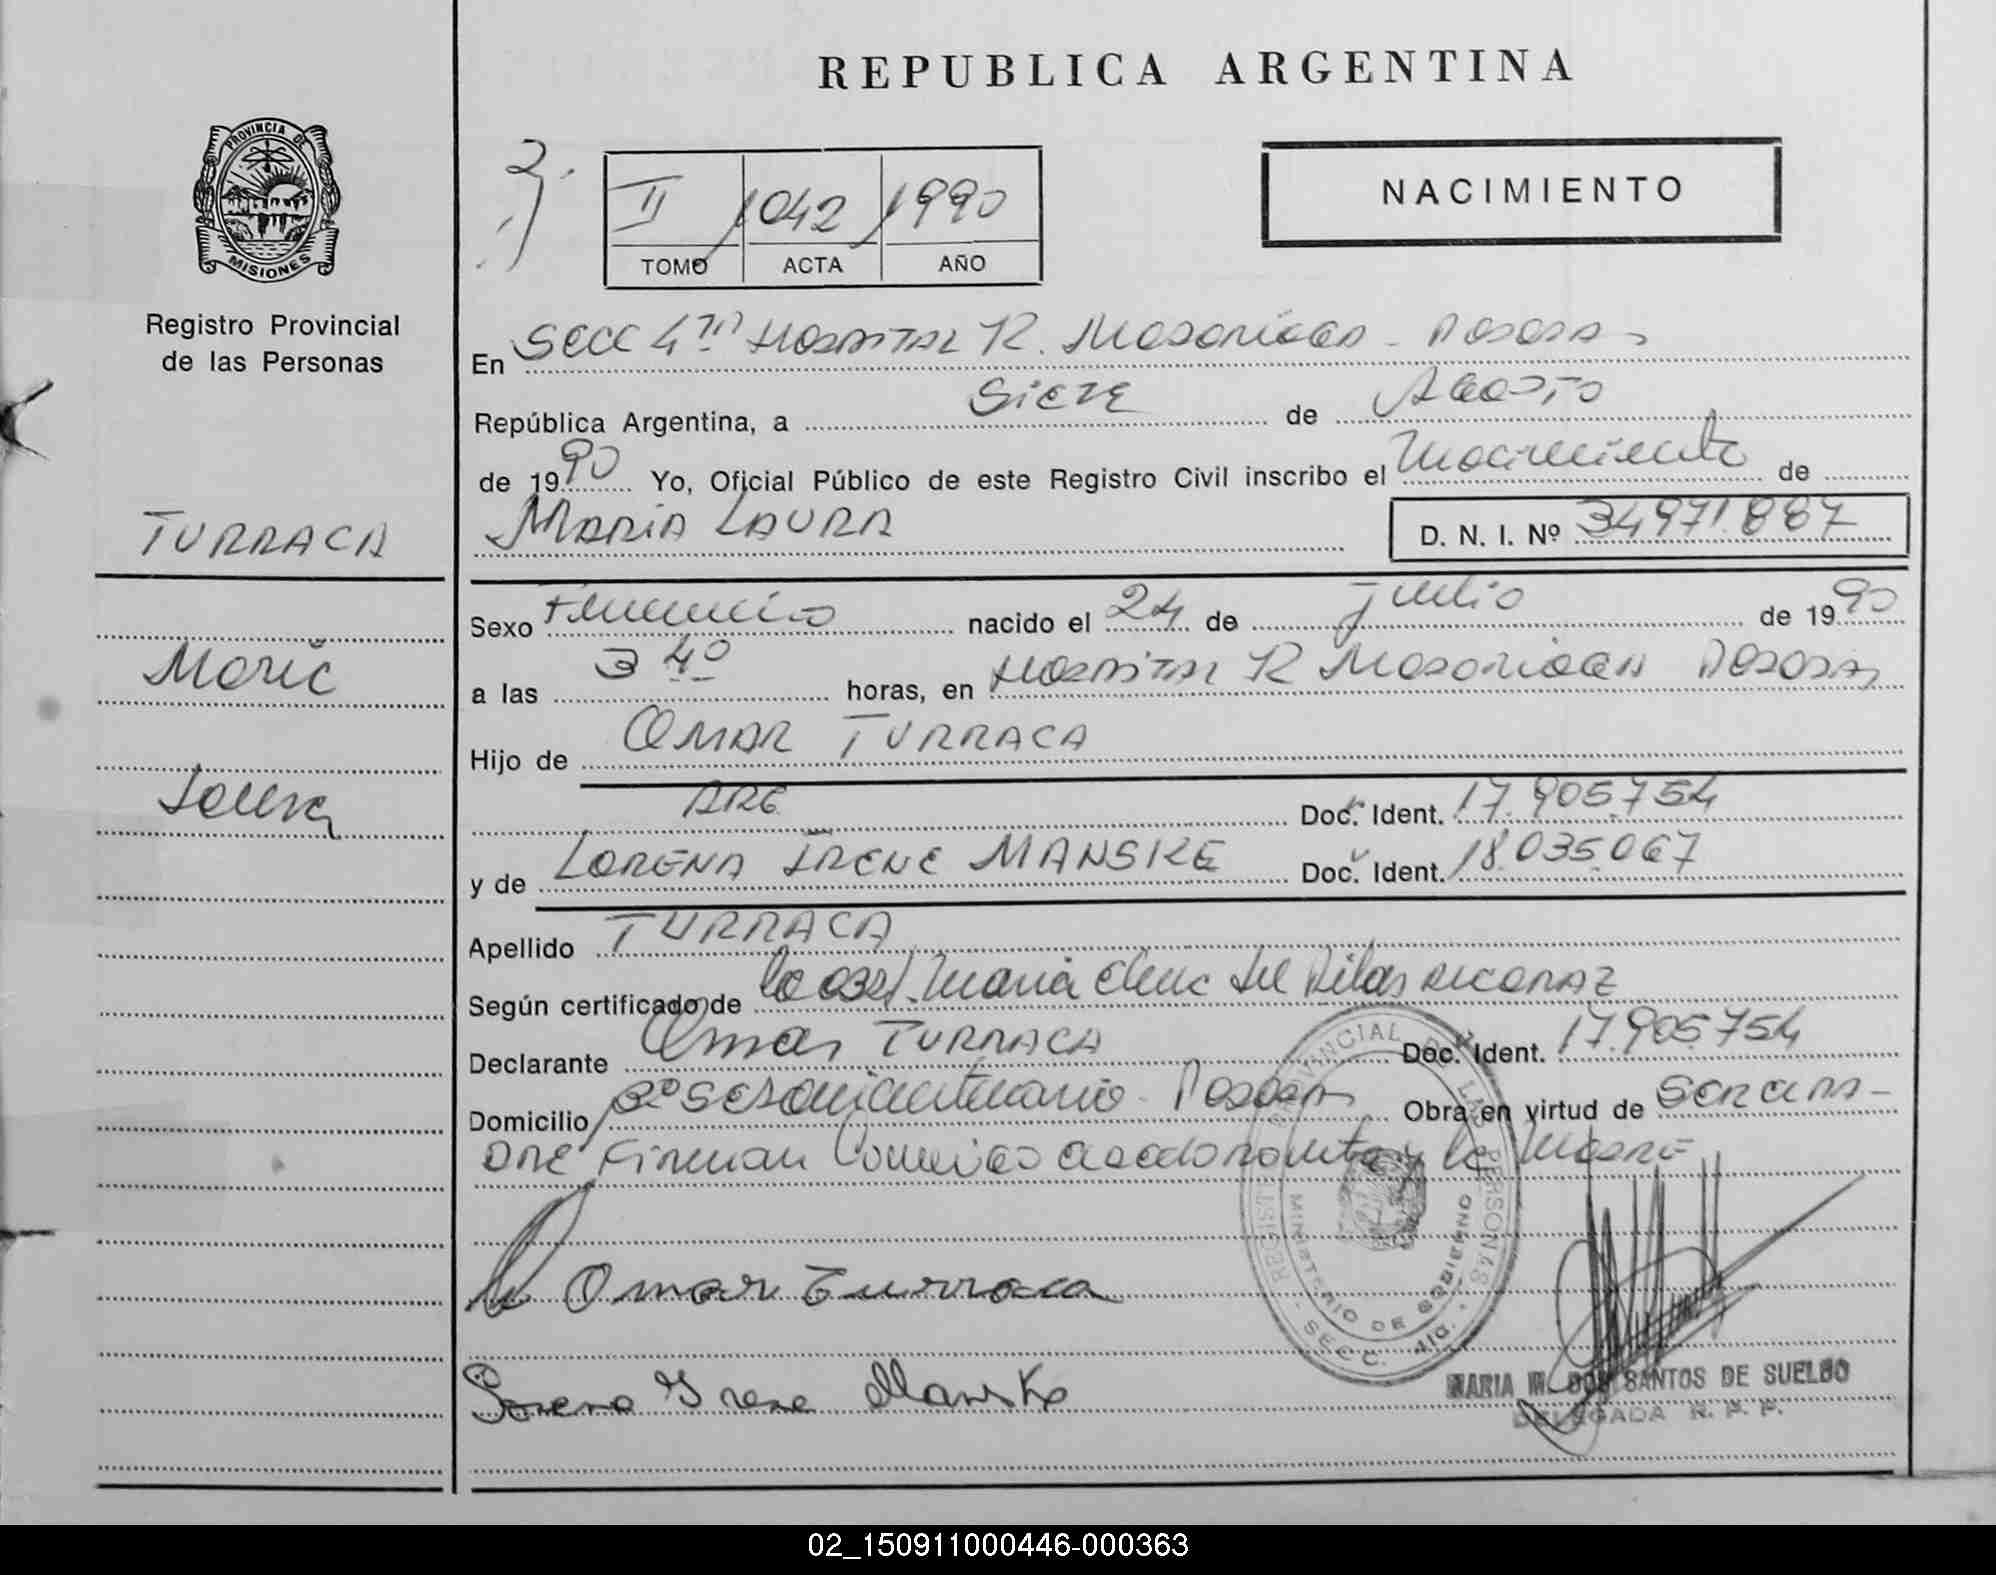 REPUBLICA ARGENTINA
PROVINCIA DE
MISIONES
Registro Provincial
de las Personas
II 1042 1990
TOMO ACTA AÑO
NACIMIENTO
En SECC 4ta HOSPITAL R. Madariaga - POSADAS
República Argentina, a SIETE de AGOSTO
de 1990 Yo, Oficial Público de este Registro Civil inscribo el Nacimiento de
MARIA LAURA D. N. I. Nº 34971.887
TURRACA
Maria
Laura
Sexo Femenino nacido el 24 de Julio de 1990
a las 3 40 horas, en HOSPITAL R Madariaga POSADAS
Hijo de OMAR TURRACA
ARG Doc. Ident. 17.905.754
y de LORENA IRENE MANSKE Doc. Ident. 18.035.067
Apellido TURRACA
Según certificado de la obst. Maria Elena del Pilar
Declarante Omar TURRACA Doc. Ident. 17.905.754
Domicilio Bº Sesquicentenario - Posadas Obra en virtud de SER EL PA-
DRE Firman Conmigo el declarante y la Madre
Omar Turraca
Lorena Irene Manske
REGISTRO PROVINCIAL DE LAS PERSONAS
MINISTERIO DE GOBIERNO
- SECC. 4ta. -
MARIA M. DOS SANTOS DE SUELDO
DELEGADA R. P. P.
02_150911000446-000363